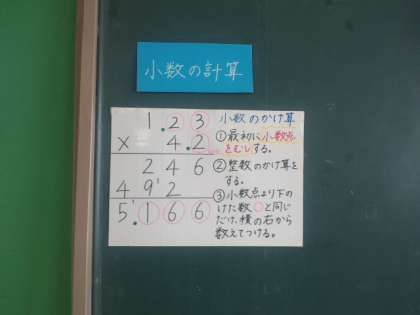 小数の計算
1.23
× 4.2
246
4912
5.166
小数のかけ算
①最初に小数点
をむしする。
②整数のかけ算を
する。
③小数点より下の
けた数○と同じ
だけ、積の右から
数えてつける。